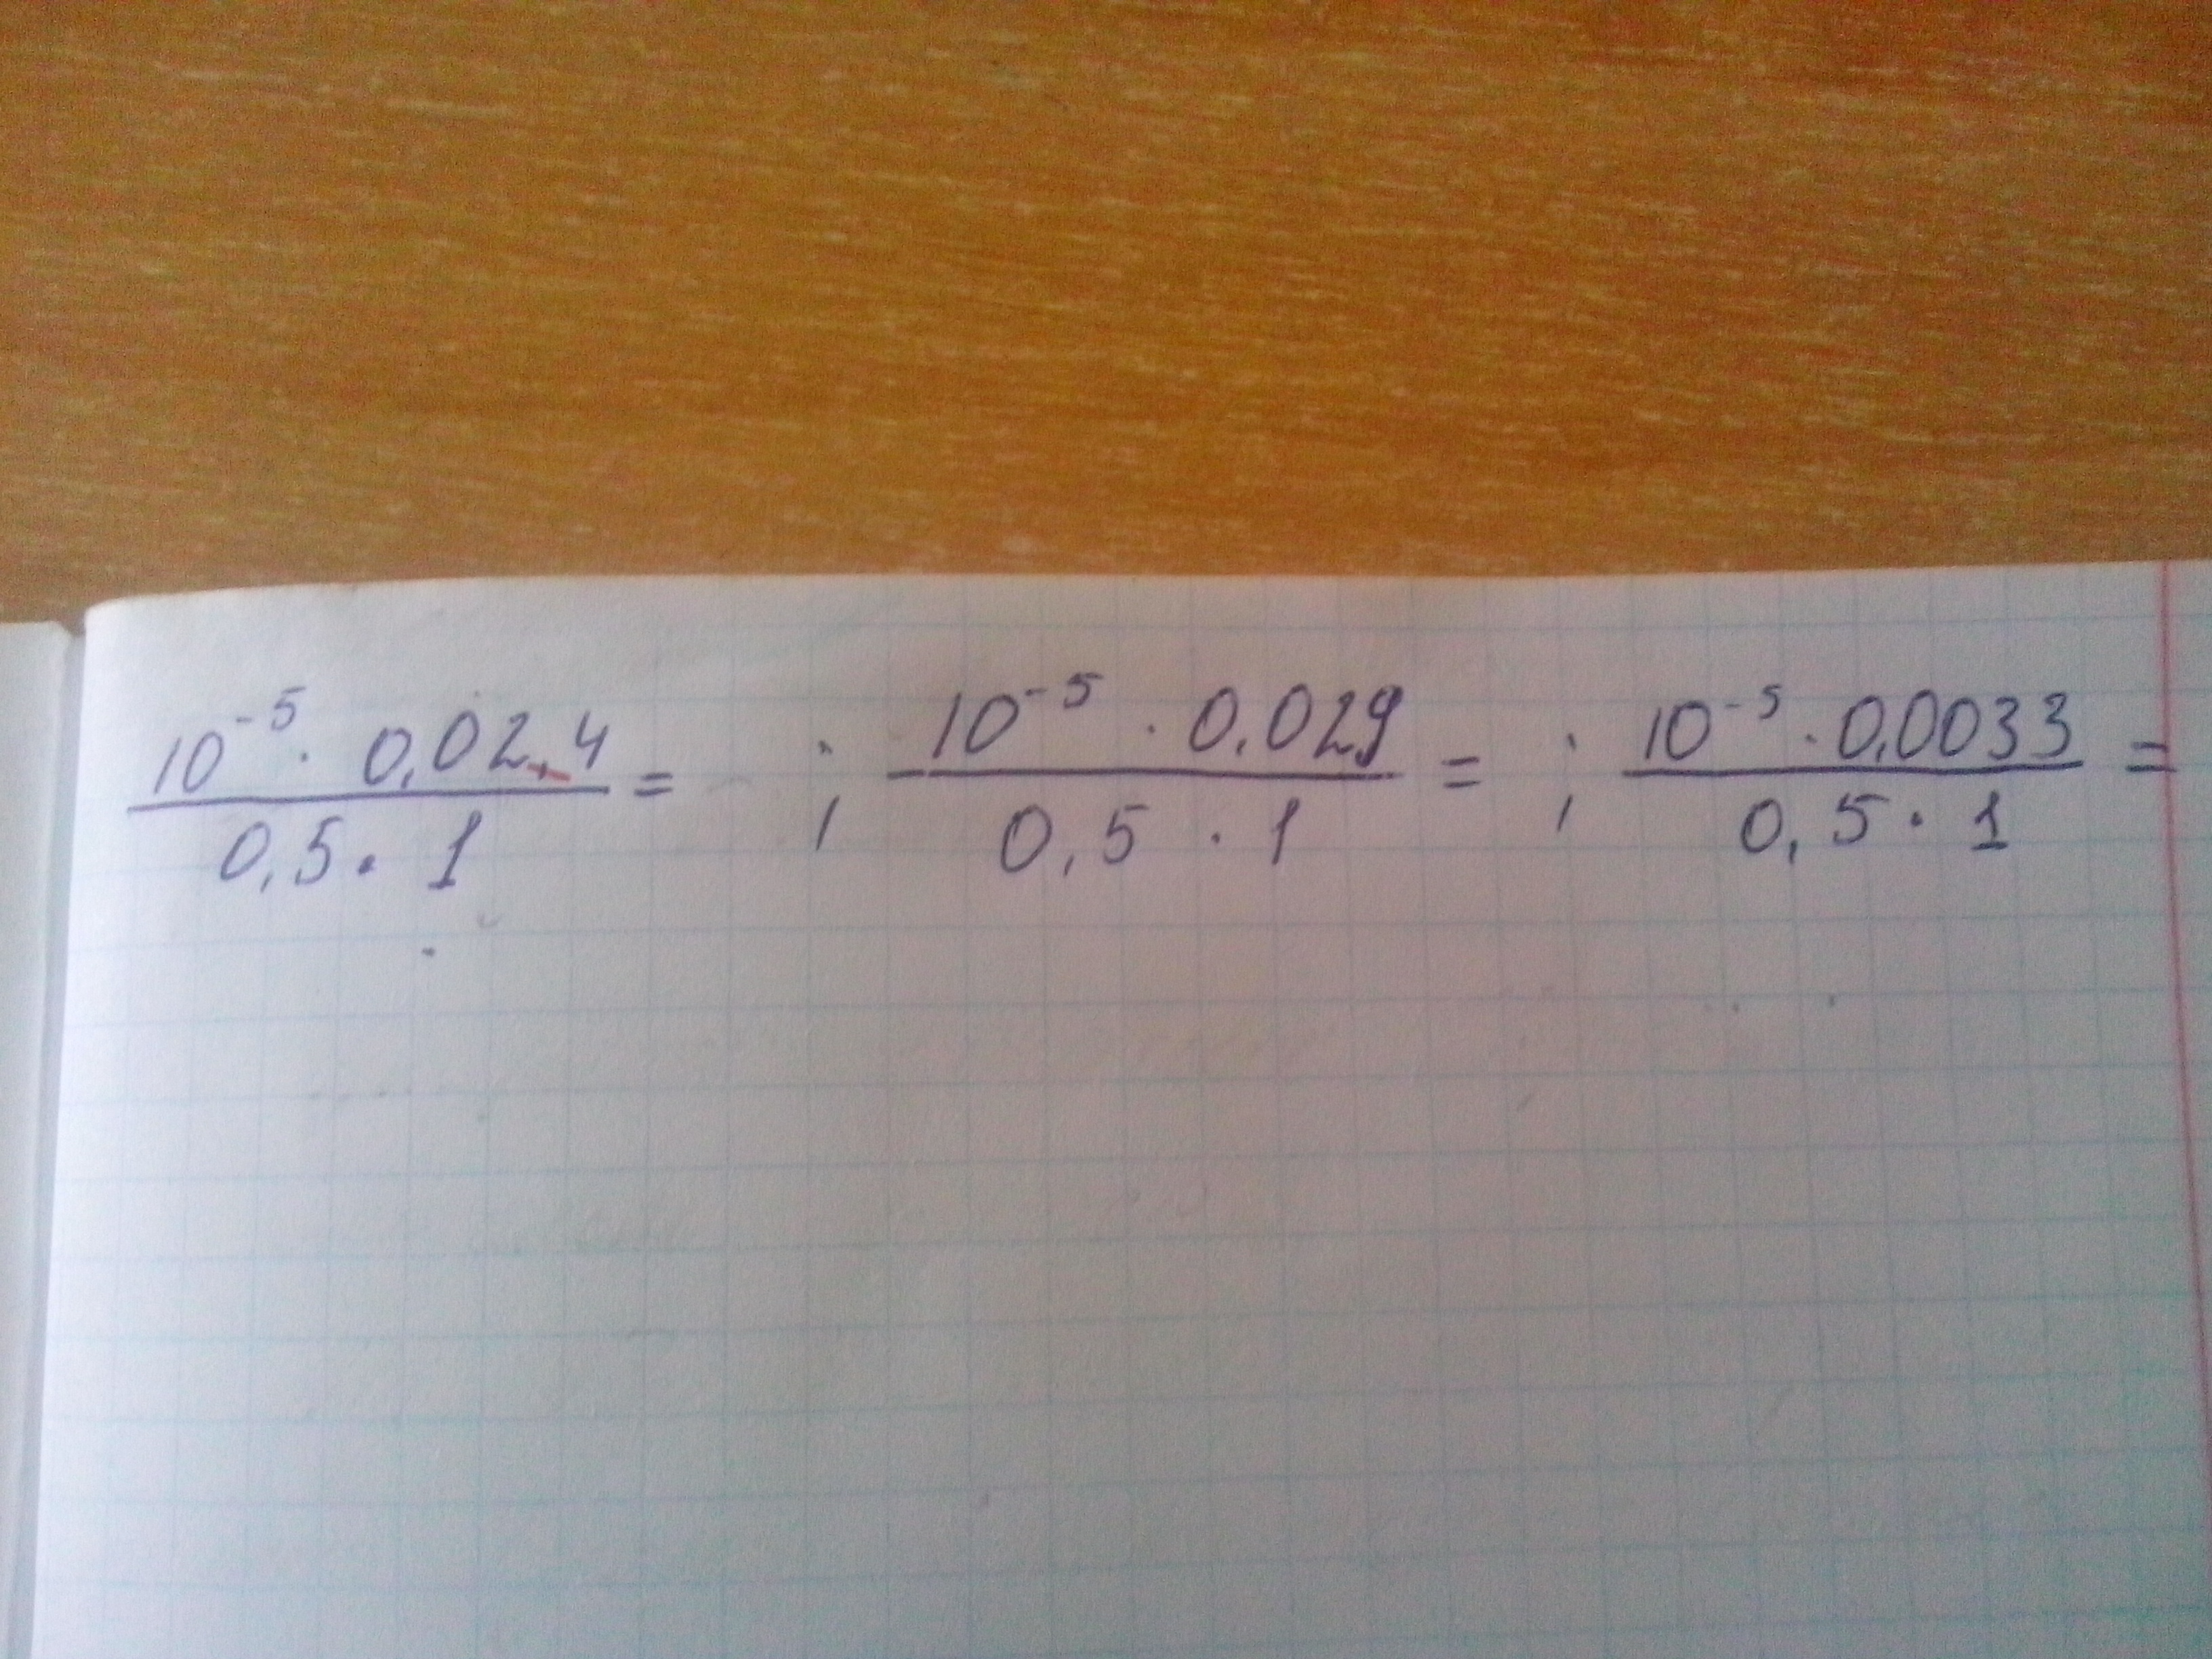 10⁻⁵ · 0,024 / 0,5 · 1 = ; 10⁻⁵ · 0,029 / 0,5 · 1 = ; 10⁻⁵ · 0,0033 / 0,5 · 1 =